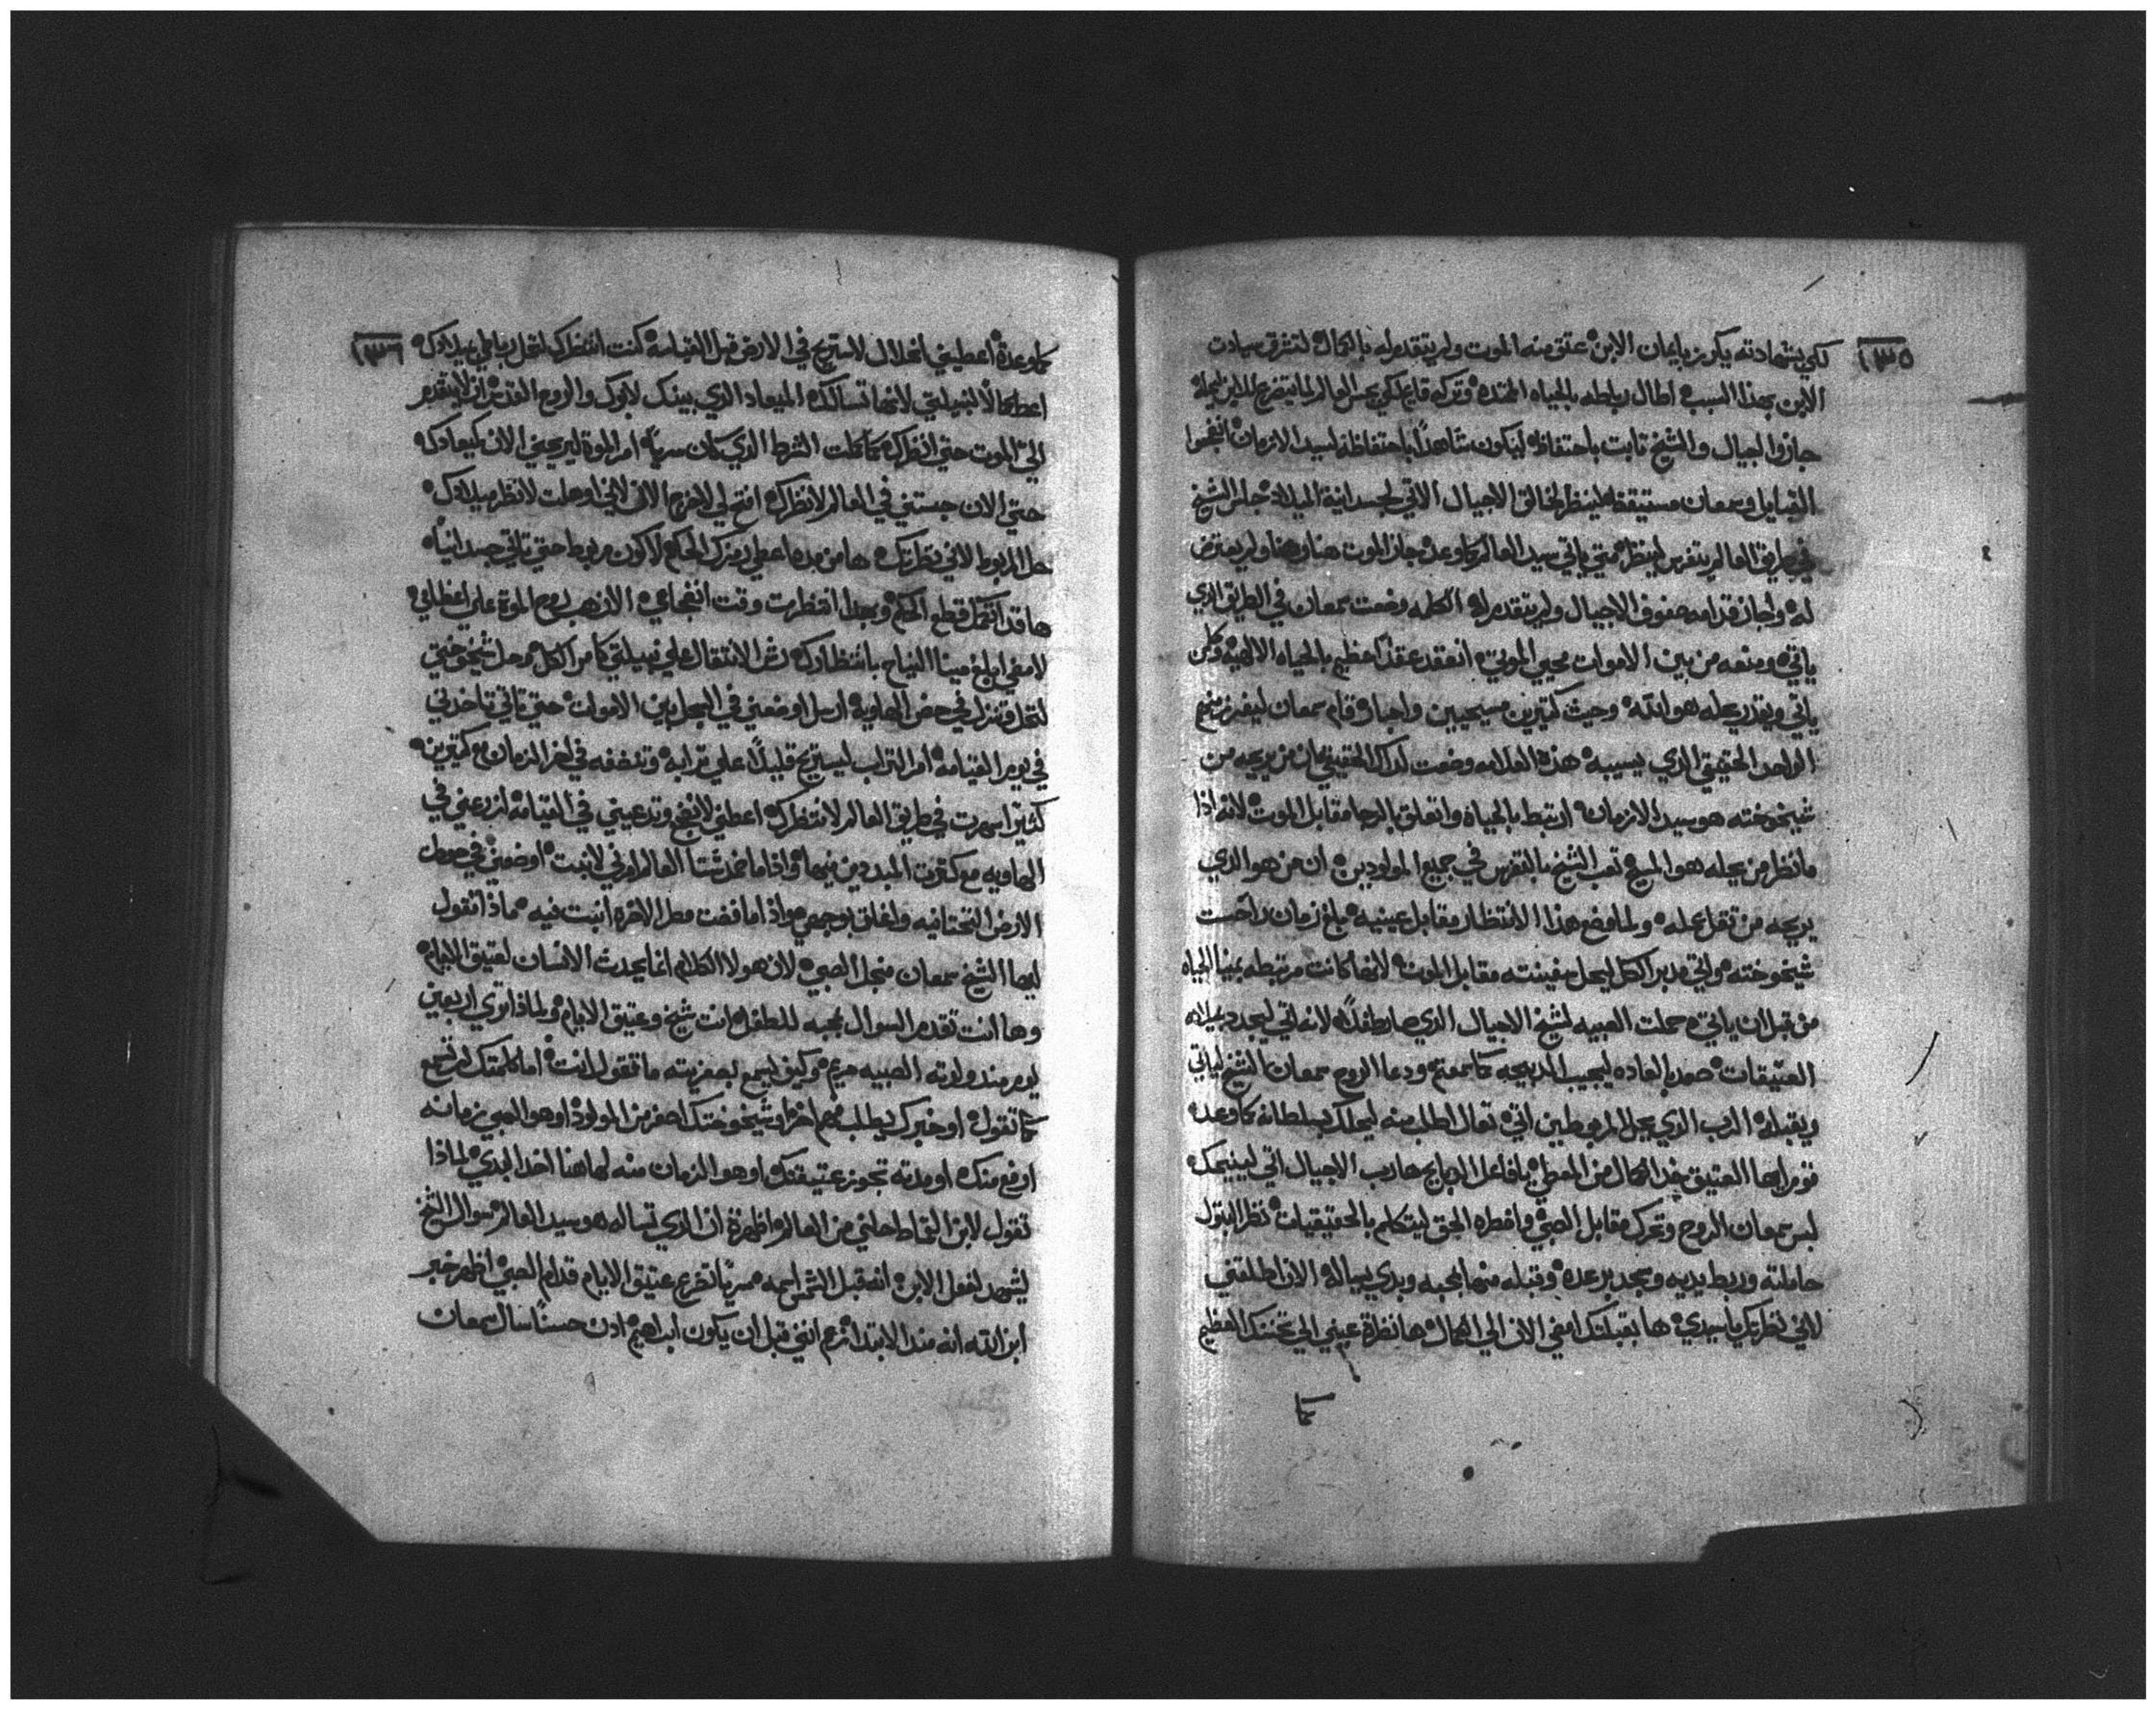 ١٣٥
لكي بشهادته يكرز بايمان الابن عتق منه الموت ولم يتقدم له بالكمال لتشرق سيادت
الابن بهذا السبب اطال رباطه بالحياه الممتده وتركه قايم لكي يحبس العالم لما يتضرع للابن ليحله
جازوا الجيال والشيخ تابت باحتفاظ ليكون شاهداً باحتفاظه لسيد الازمان انفجعوا
القبايل وسمعان مستيقظ لينظر لخالق الاجيال الاتي لجسدانية الميلاد جلس الشيخ
في طريق العالم يتفرس لينظر متي ياتي سيد العالم كما وعده جاز الموت هنا وهنا ولم يعترض
له واجاز قدامه صفوف الاجيال ولم يتقدم له الكلمه وضعت سمعان في الطريق الذي
ياتي ومنعه من بين الاموات محيي الموتي انعقد عقداً عظيم بالحياه الالهيه وكل من
ياتي ويقدر يحله هو الله وحيث كتيرين مسيحيين واحبار قام سمعان ليفرز منهم
الواحد الحقيقي الذي يسيبه هذه العلامه وضعت لذاك الحقيقي ان من يريحه من
شيخوخته هو سيد الازمان ارتبط بالحياه واتعلق بالرجا مقابل الموت لانه اذا
ما نظر من يحله هو المسيح تعب الشيخ بالتفرس في جميع المولودين ان من هو الذي
يريحه من تقل عمله ولما وضع هذا الانتظار مقابل عينيه بلغ زمان راحت
شيخوخته واتي مدبر الكل ليحل سفينته مقابل الموت لانها كانت مرتبطه بمينا الحياه
من قبل ان ياتي حملت الصبيه لشيخ الاجيال الذي صار طفلاً لانه اتي ليجدد ميلاده
العتيقات صعد بالعاده ليجيب الذبيحه كما سمعتم ودعا الروح سمعان الشيخ لياتي
ويقبله الرب الذي يحل المربوطين اتي تعال اطلب منه ليحلك بسلطانه كما وعده
قوم ايها العتيق خذ الكمال من المعطي يا فاعل الدبايح ها رب الاجيال اتي لينيحك
لبس سمعان الروح وتحرك مقابل الصبي واضطره الحق ليتكلم بالحقيقيات نظر البتول
حاملته وربط يديه وسجد برعده وقبله منها بمحبه وبدي يساله الان اطلقني
لاني نظرتك يا سيدي ها بقبلتك امضي الان الي الكمال ها نظرة عيني الي تحننك العظيم
كما
١٣٦
كما وعدة اعطيني انحلال لاستريح في الارض قبل القيامه كنت انتظرك لتحل رباطي بميلادك
اعطي كمالاً لقبيلتي لانها تسالك الميعاد الذي بينك لابوك والروح القدس ان لا يتقدم
الي الموت حتي انظرك كما كملت الشرط الذي كان سرياً امر الموة ليريحني الان كميعادك
حتي الان حبستني في العالم لانظرك افتح لي لاخرج الان لاني اوهلت لانظر ميلادك
حل المربوط لاني نظرتك ها من بده اعطي رمزك الحكم لاكون مربوط حتي تاتي جسدانياً
ها قد اكتمل قطع الحكم وبجدا انتظرت وقت انضجاعي الان هب لروح الموة علي اعظامي
لامضي ابلغ مينا النياح بانتظارك رش الانتقال علي قبيلتي كامر الكل وحل شيخوختي
لتحل وتنزل في حضن الهاويه ارسل اوضعني في البجل بين الاموات حتي تاتي تاخدني
في يوم القيامه امر التراب ليستريح قليلاً علي ترابه وتنفضه في اخر الزمان مع كتيرين
كثيراً سهرت في طريق العالم لانتظرك اعطني لانضجع وتدعيني في القيامه ازرعني في
الهاويه مع كترت المبددين فيها واذا ما خمد شتا العالم اورني لانبت اوضعني في حضن
الارض التحتانيه واغلق بوجهي واذا ما افضت مطر الاخره انبت فيه ماذا تقول
ايها الشيخ سمعان منجل الصبي لان هولا الكلام انما يحدث الانسان لعتيق الايام
وها انت تقدم السوال بمحبه للطفل انت شيخ وعتيق الايام ولماذا توي اربعين
يوم مند ولدته الصبيه مريم وكيف يسمع لصغريته ما تقول انت اما كلمتك لم تسمع
كما تقول او خبرك يطلب فهم اخر او شيخوختك اصغر من المولود او هو الصبي زمانه
ارفع منك او مدته تجوز عتيقتك او هو الزمان منه لها هنا اخد البدي لماذا
تقول لابن القماط احلني من العالم اظهرة ان الذي تساله هو سيد العالم سوال الشيخ
يشهد لفعل الابن انه قبل الشمس اسمه سرياً تضرع عتيق الايام قدام الصبي اظهر خبر
ابن الله انه مند الابتدا زعم انني قبل ان يكون ابراهيم ادن حسناً سال سمعان